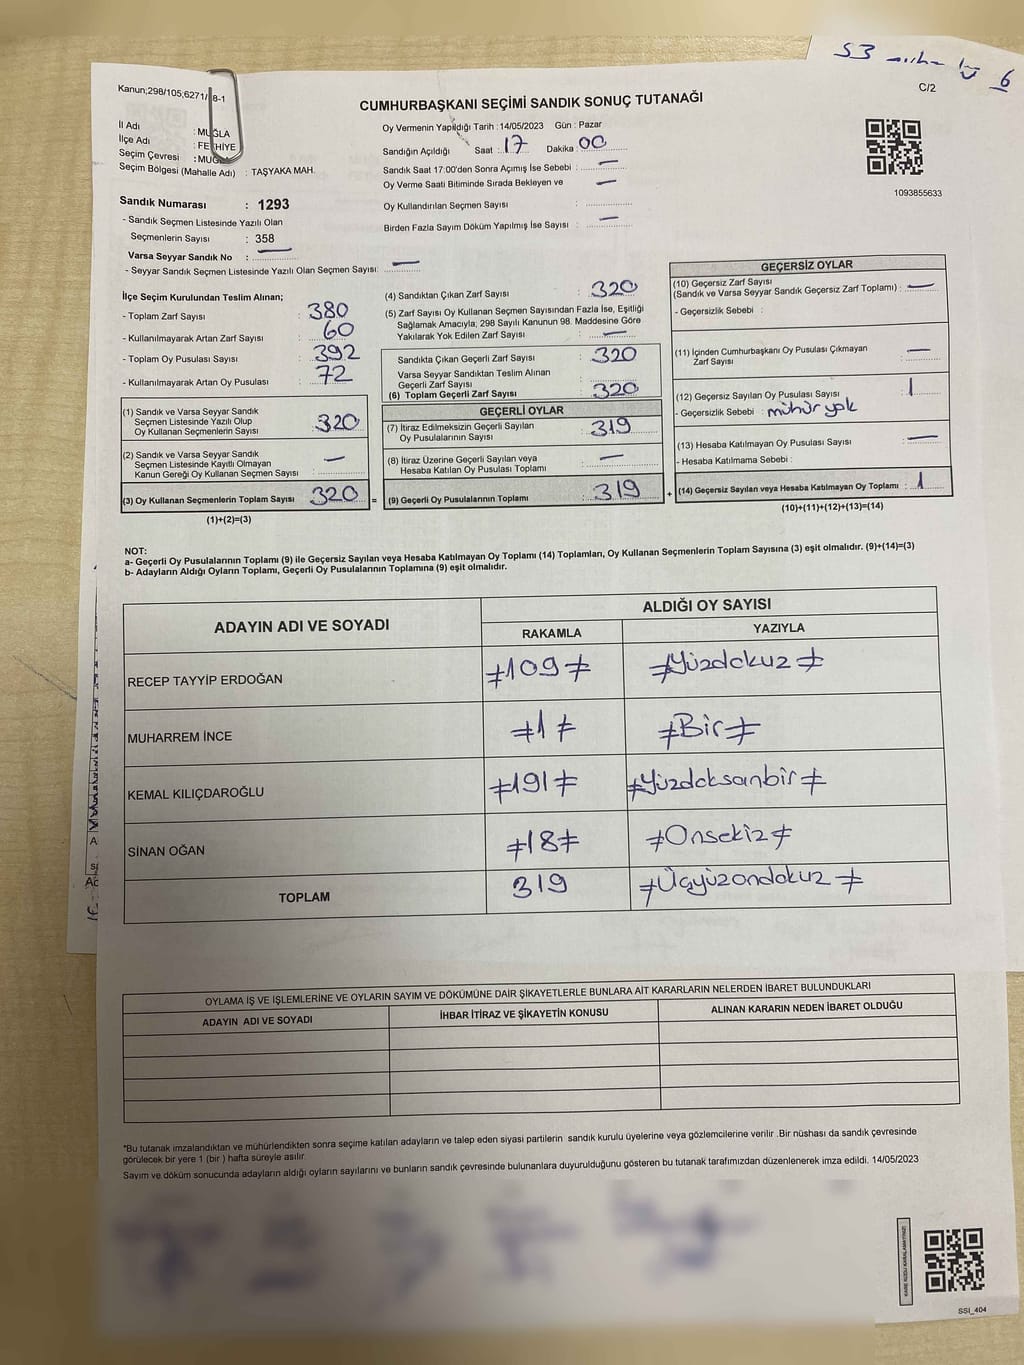 53 6
C/2
Kanun;298/105;6271/ 8-1
CUMHURBAŞKANI SEÇİMİ SANDIK SONUÇ TUTANAĞI
İl Adı : MUĞLA
İlçe Adı : FETHİYE
Seçim Çevresi : MUĞLA
Seçim Bölgesi (Mahalle Adı) : TAŞYAKA MAH.
Oy Vermenin Yapıldığı Tarih : 14/05/2023 Gün : Pazar
Sandığın Açıldığı Saat : 17 Dakika : 00
Sandık Saat 17:00'den Sonra Açımış İse Sebebi : —
Oy Verme Saati Bitiminde Sırada Bekleyen ve —
Oy Kullandırılan Seçmen Sayısı :
Birden Fazla Sayım Döküm Yapılmış İse Sayısı : —
1093855633
Sandık Numarası : 1293
- Sandık Seçmen Listesinde Yazılı Olan
Seçmenlerin Sayısı : 358
Varsa Seyyar Sandık No : —
- Seyyar Sandık Seçmen Listesinde Yazılı Olan Seçmen Sayısı: —
İlçe Seçim Kurulundan Teslim Alınan;
- Toplam Zarf Sayısı : 380
- Kullanılmayarak Artan Zarf Sayısı : 60
- Toplam Oy Pusulası Sayısı : 392
- Kullanılmayarak Artan Oy Pusulası : 72
(1) Sandık ve Varsa Seyyar Sandık
Seçmen Listesinde Yazılı Olup
Oy Kullanan Seçmenlerin Sayısı : 320
(2) Sandık ve Varsa Seyyar Sandık
Seçmen Listesinde Kayıtlı Olmayan
Kanun Gereği Oy Kullanan Seçmen Sayısı : —
(3) Oy Kullanan Seçmenlerin Toplam Sayısı : 320 =
(1)+(2)=(3)
(4) Sandıktan Çıkan Zarf Sayısı : 320
(5) Zarf Sayısı Oy Kullanan Seçmen Sayısından Fazla İse, Eşitliği
Sağlamak Amacıyla; 298 Sayılı Kanunun 98. Maddesine Göre
Yakılarak Yok Edilen Zarf Sayısı : —
Sandıkta Çıkan Geçerli Zarf Sayısı : 320
Varsa Seyyar Sandıktan Teslim Alınan
Geçerli Zarf Sayısı :
(6) Toplam Geçerli Zarf Sayısı : 320
GEÇERLİ OYLAR
(7) İtiraz Edilmeksizin Geçerli Sayılan
Oy Pusulalarının Sayısı : 319
(8) İtiraz Üzerine Geçerli Sayılan veya
Hesaba Katılan Oy Pusulası Toplamı : —
(9) Geçerli Oy Pusulalarının Toplamı : 319 +
GEÇERSİZ OYLAR
(10) Geçersiz Zarf Sayısı
(Sandık ve Varsa Seyyar Sandık Geçersiz Zarf Toplamı) : —
- Geçersizlik Sebebi :
(11) İçinden Cumhurbaşkanı Oy Pusulası Çıkmayan
Zarf Sayısı : —
(12) Geçersiz Sayılan Oy Pusulası Sayısı : 1
- Geçersizlik Sebebi : mühür yok
(13) Hesaba Katılmayan Oy Pusulası Sayısı : —
- Hesaba Katılmama Sebebi :
(14) Geçersiz Sayılan veya Hesaba Katılmayan Oy Toplamı : 1
(10)+(11)+(12)+(13)=(14)
NOT:
a- Geçerli Oy Pusulalarının Toplamı (9) ile Geçersiz Sayılan veya Hesaba Katılmayan Oy Toplamı (14) Toplamları, Oy Kullanan Seçmenlerin Toplam Sayısına (3) eşit olmalıdır. (9)+(14)=(3)
b- Adayların Aldığı Oyların Toplamı, Geçerli Oy Pusulalarının Toplamına (9) eşit olmalıdır.
ADAYIN ADI VE SOYADI ALDIĞI OY SAYISI
RAKAMLA YAZIYLA
RECEP TAYYİP ERDOĞAN ≠109≠ ≠Yüzdokuz≠
MUHARREM İNCE ≠1≠ ≠Bir≠
KEMAL KILIÇDAROĞLU ≠191≠ ≠Yüzdoksanbir≠
SİNAN OĞAN ≠18≠ ≠Onsekiz≠
TOPLAM 319 ≠Üçyüzondokuz≠
OYLAMA İŞ VE İŞLEMLERİNE VE OYLARIN SAYIM VE DÖKÜMÜNE DAİR ŞİKAYETLERLE BUNLARA AİT KARARLARIN NELERDEN İBARET BULUNDUKLARI
ADAYIN ADI VE SOYADI İHBAR İTİRAZ VE ŞİKAYETİN KONUSU ALINAN KARARIN NEDEN İBARET OLDUĞU
*Bu tutanak imzalandıktan ve mühürlendikten sonra seçime katılan adayların ve talep eden siyasi partilerin sandık kurulu üyelerine veya gözlemcilerine verilir .Bir nüshası da sandık çevresinde
görülecek bir yere 1 (bir ) hafta süreyle asılır.
Sayım ve döküm sonucunda adayların aldığı oyların sayılarını ve bunların sandık çevresinde bulunanlara duyurulduğunu gösteren bu tutanak tarafımızdan düzenlenerek imza edildi. 14/05/2023
KARE KODU KARALAMAYINIZ!
SSI_404